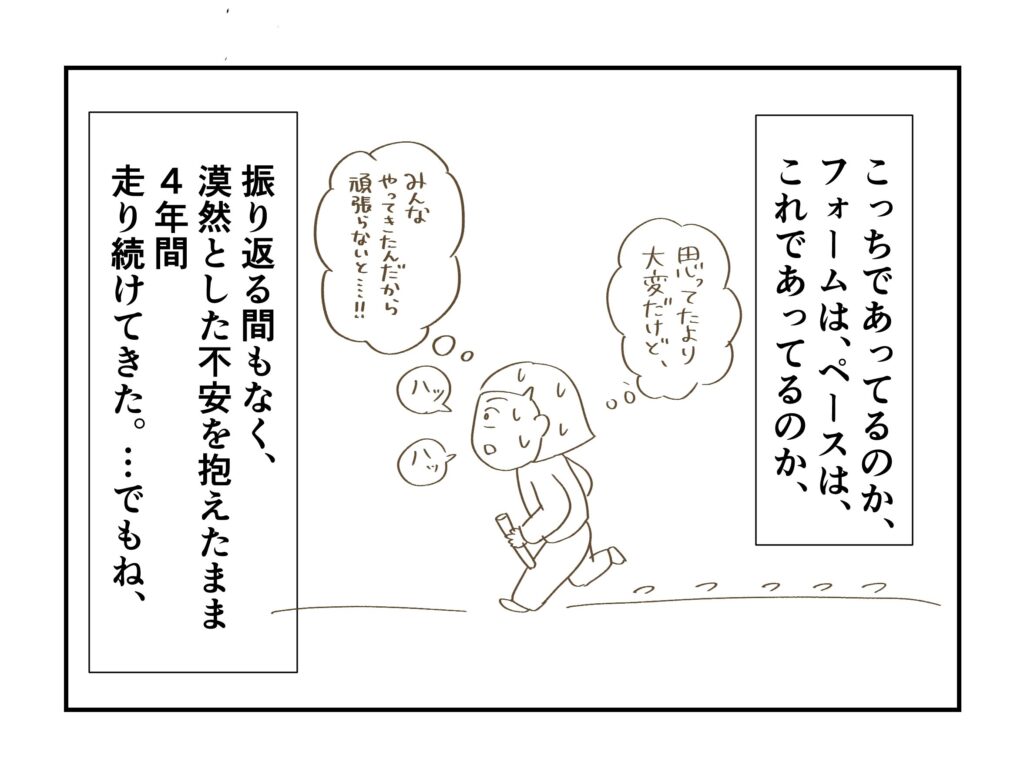 こっちであってるのか、
フォームは、ペースは、
これであってるのか、
思ってたより
大変だけど、
みんな
やってきたんだから
頑張らないと…!!
ハッ
ハッ
振り返る間もなく、
漠然とした不安を抱えたまま
４年間
走り続けてきた。…でもね、